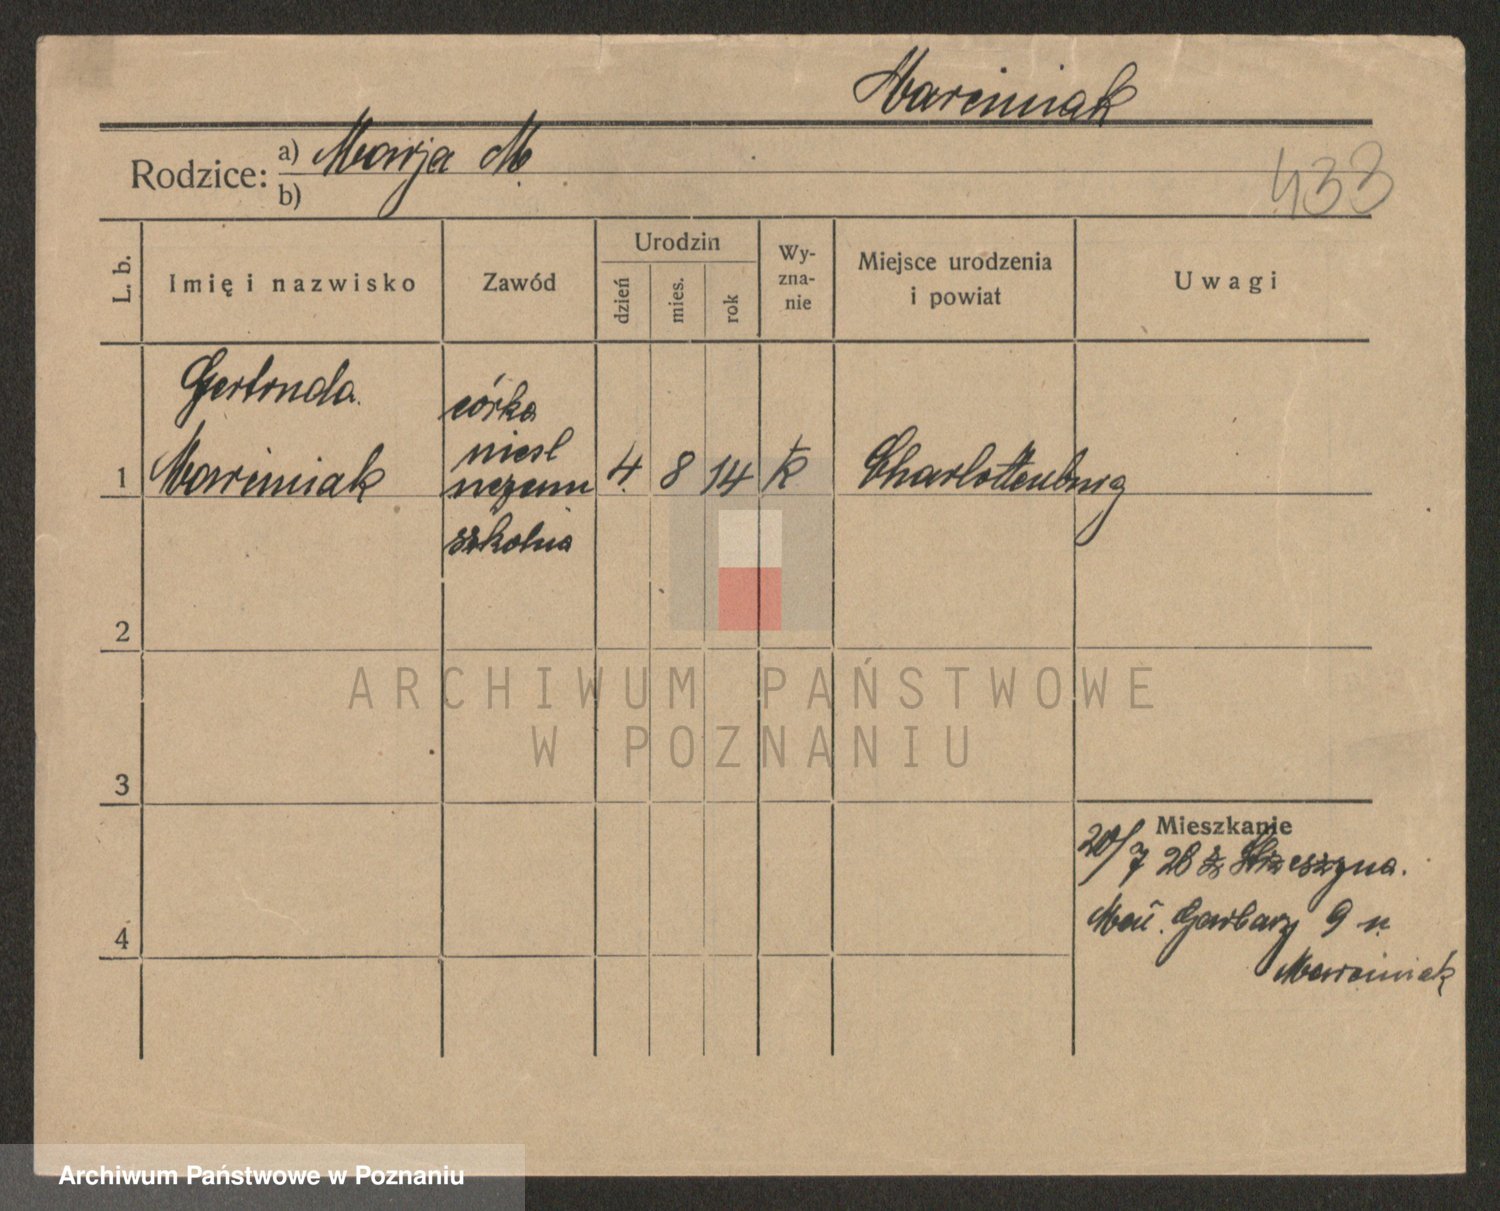 Marciniak
Rodzice: a) Marja M
b)
433
L. b.
Imię i nazwisko
Zawód
Urodzin
dzień
mies.
rok
Wy-
zna-
nie
Miejsce urodzenia
i powiat
Uwagi
Gertruda
córka
niesl
1 Marciniak uczenn 4 8 14 k Charlottenburg
szkolna
2
ARCHIWUM PAŃSTWOWE
W POZNANIU
3
Mieszkanie
20/7 28 z Strzeszyna.
Garbary 9 u
4
Marciniak
Archiwum Państwowe w Poznaniu